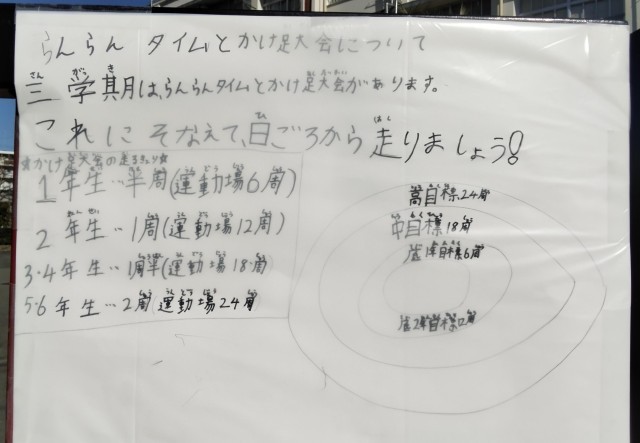 らんらん タイムとかけ足大会について
三学期は、らんらんタイムとかけ足大会があります。
これにそなえて、日ごろから走りましょう!
☆かけ足大会の走るきょり☆
1年生…半周(運動場6周)
2年生…1周(運動場12周)
3・4年生…1周半(運動場18周)
5・6年生…2周 運動場24周
高目標24周
中目標18周
低1年目標6周
低2年目標12周